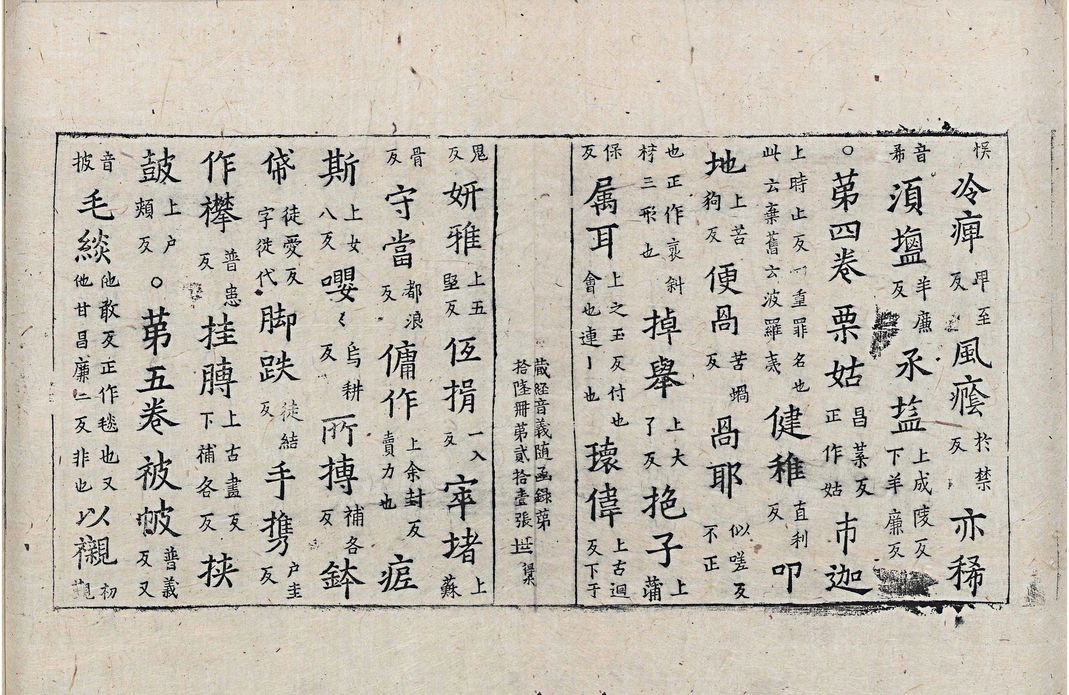 悮冷痺甲至反風癊於禁反亦稀
音希湏塩羊廉反氶塩上成陵反下羊廉反
○苐四卷栗姑昌葉反正作姑市迦
上時止反一重罪名也此云棄舊云波羅夷健稚直利反叩
地上苦狗反便咼苦蝸反咼耶似嗟反不正
也正作衺斜三形也掉舉上大了反抱子上蒲
保反属耳上之玉反付也會也連丨也瓌偉上古迴反下于
藏経音義随函録苐
拾陸冊苐貳拾壹張
鬼反妍雅上五堅反捐一入反窂堵上蘇
骨反守當都浪反傭作上余封反賣力也瘧
斯上女八反嚶〻烏耕反所摶補各反鉢
帒徒愛反字從代脚跌徒結反手㩗户圭反
作攀普患反挂膊上古畫反下補各反挟
鼓上户頰反○苐五卷被帔普義反又
音披毛緂他敢反正作毯也又他甘昌廉二反非也以襯初覲